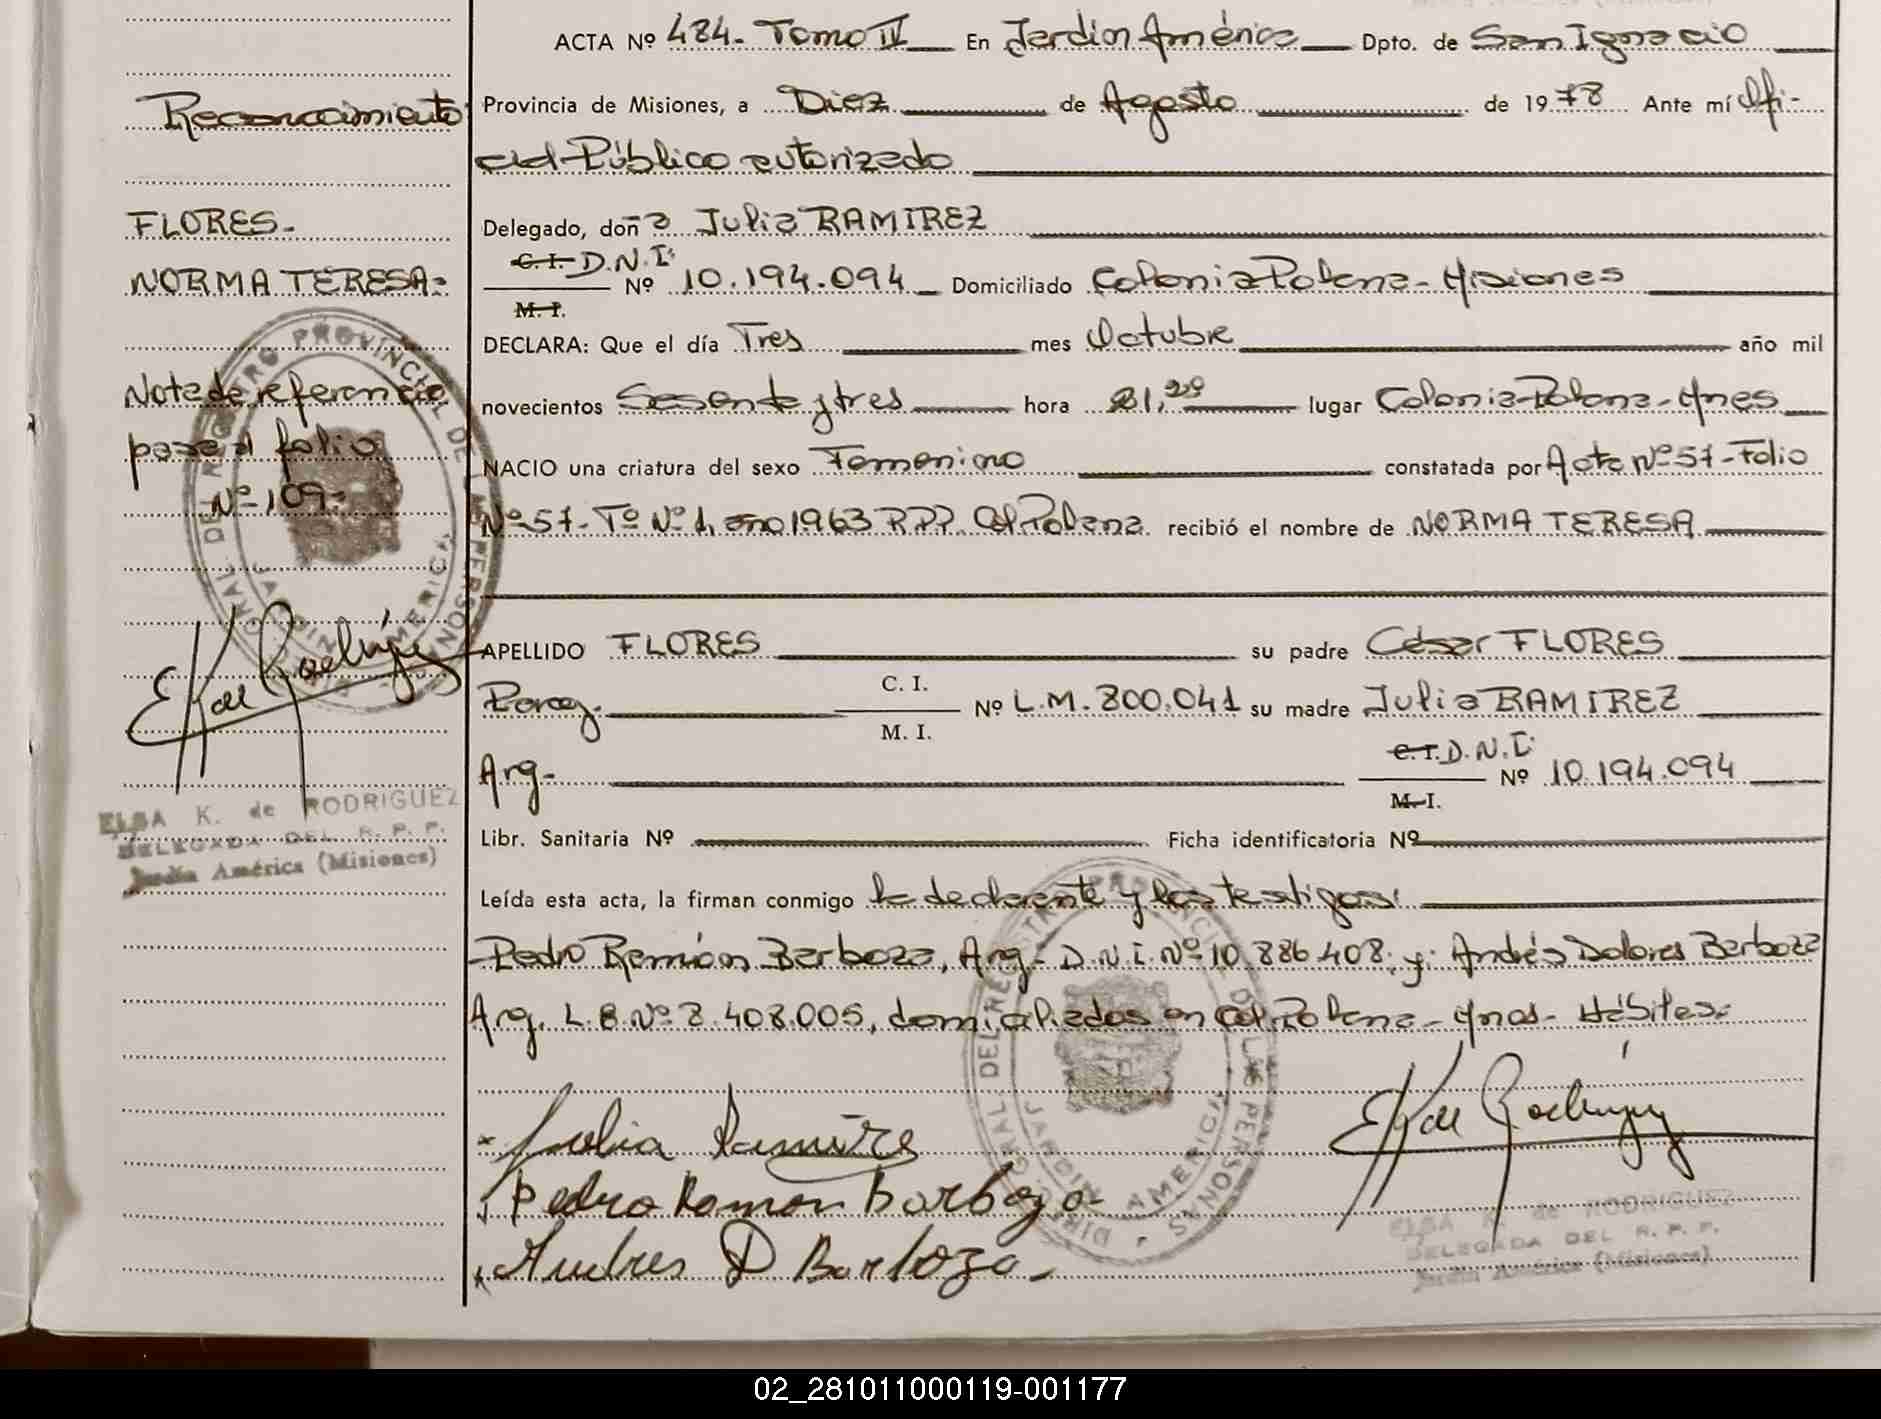 ACTA Nº 484- Tomo II En Jardín América Dpto. de San Ignacio
Provincia de Misiones, a Diez de Agosto de 1978 Ante mí Ofi-
cial Público autorizado
Delegado, doña Julia RAMIREZ
C. I. D.N.I.
M. I. Nº 10.194.094 Domiciliado Colonia Polana - Misiones
DECLARA: Que el día Tres mes Octubre año mil
novecientos Sesenta y tres hora 21,²⁰ lugar Colonia Polana - Mnes
NACIO una criatura del sexo Femenino constatada por Acta Nº 57 - Folio
Nº 57 - Tº Nº 1, año 1963 R.P.P. Col. Polana recibió el nombre de NORMA TERESA
APELLIDO FLORES su padre César FLORES
Parag. C. I. M. I. Nº L.M. 800.041 su madre Julia RAMIREZ
Arg- C.I. D.N.I. M. I. Nº 10.194.094
Libr. Sanitaria Nº Ficha identificatoria Nº
Leída esta acta, la firman conmigo la declarante y los testigos:
Pedro Ramón Barboza, Arg- D.N.I. Nº 10.886.408; y: Andrés Dolores Barboza
Arg. L.E. Nº 8.408.005, domiciliados en Col. Polana - Mnes- Hábiles-
Julia Ramires
Pedro Ramon Barboza
Andres D Barboza
Reconocimiento
FLORES-
NORMA TERESA-
Nota de referencia
pase al folio
Nº 109-
DIRECCION GENERAL DEL REGISTRO PROVINCIAL DE LAS PERSONAS
JARDIN AMERICA
E K de Rodríguez
ELSA K. de RODRIGUEZ
DELEGADA DEL R. P. P.
Jardín América (Misiones)
DIRECCION GENERAL DEL REGISTRO PROVINCIAL DE LAS PERSONAS
JARDIN AMERICA
E K de Rodríguez
ELSA K. de RODRIGUEZ
DELEGADA DEL R. P. P.
Jardín América (Misiones)
02_281011000119-001177